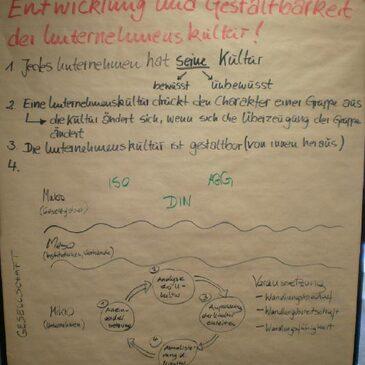 Entwicklung und Gestaltbarkeit
der Unternehmenskultur!
1 Jedes Unternehmen hat seine Kultur
bewusst unbewusst
2 Eine Unternehmenskultur drückt den Charakter einer Gruppe aus
die Kultur ändert sich, wenn sich die Überzeugung der Gruppe
ändert
3. Die Unternehmenskultur ist gestaltbar (von innen heraus)
4.
ISO AGG
DIN
Makro
(Gesetzgeber)
Meso
(Institutionen, Verbände)
Mikro
(Unternehmen)
GESELLSCHAFT
Analyse
kultur
2
4
Voraussetzung
- Wandlungsbedarf
- Wandlungsbereitschaft
- Wandlungsfähigkeit